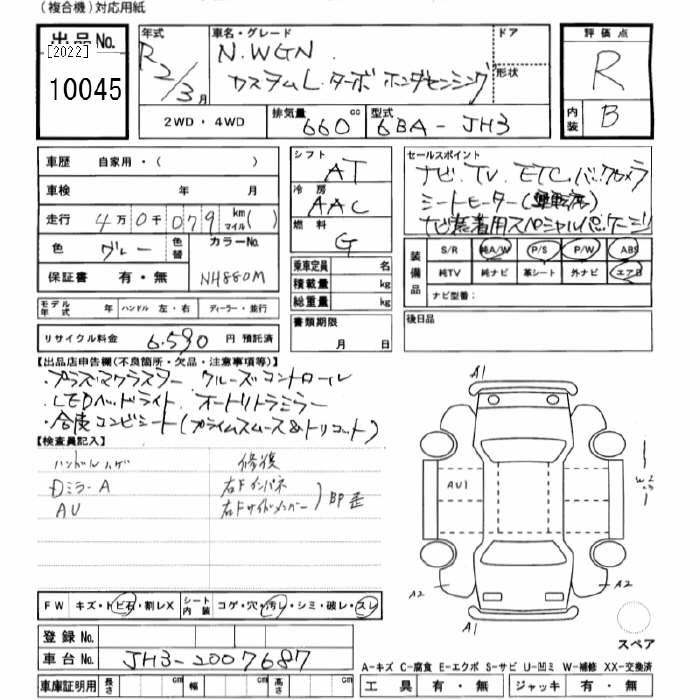 (複合機)対応用紙
出品No. [2022] 10045
年式 R2/3月
車名・グレード N.WGN カスタムL.ターボ ホンダセンシング
ドア 形状
2WD・4WD 排気量 660 cc 型式 6BA-JH3
評価点 R
内装 B
車歴 自家用・( )
車検 年 月
走行 4万0千079 km マイル( )
色 グレー 色替 カラーNo. NH880M
保証書 有・無
モデル年式 年 ハンドル 左・右 ディーラー・並行
リサイクル料金 6.590 円 預託済
シフト AT
冷房 AAC
燃料 G
乗車定員 名
積載量 kg
総重量 kg
書類期限 月 日
セールスポイント
ナビ.TV.ETC.バックカメラ
シートヒーター(運転席)
ナビ装着用スペシャルパッケージ
装備品 S/R 純A/W P/S P/W ABS
純TV 純ナビ 革シート 外ナビ エアB
ナビ型番:
後日品
【出品店申告欄(不良箇所・欠品・注意事項等)】
・プラズマクラスター.クルーズコントロール
・LEDヘッドライト.オートリトラミラー
・合皮コンビシート(プライムスムース&トリコット)
【検査員記入】
ハンドルハゲ 修復
Dミラー A 右Fインパネ
AU 右Fサイドメンバー 即歪
A1
AU1
W2
A2 A2
A1
スペア
FW キズ・トビ石・割レX シート内装 コゲ・穴・汚レ・シミ・破レ・スレ
登録No.
車台No. JH3-2007687
車庫証明用 長さ cm 幅 cm 高さ cm
A-キズ C-腐食 E-エクボ S-サビ U-凹ミ W-補修 XX-交換済
工具 有・無 ジャッキ 有・無